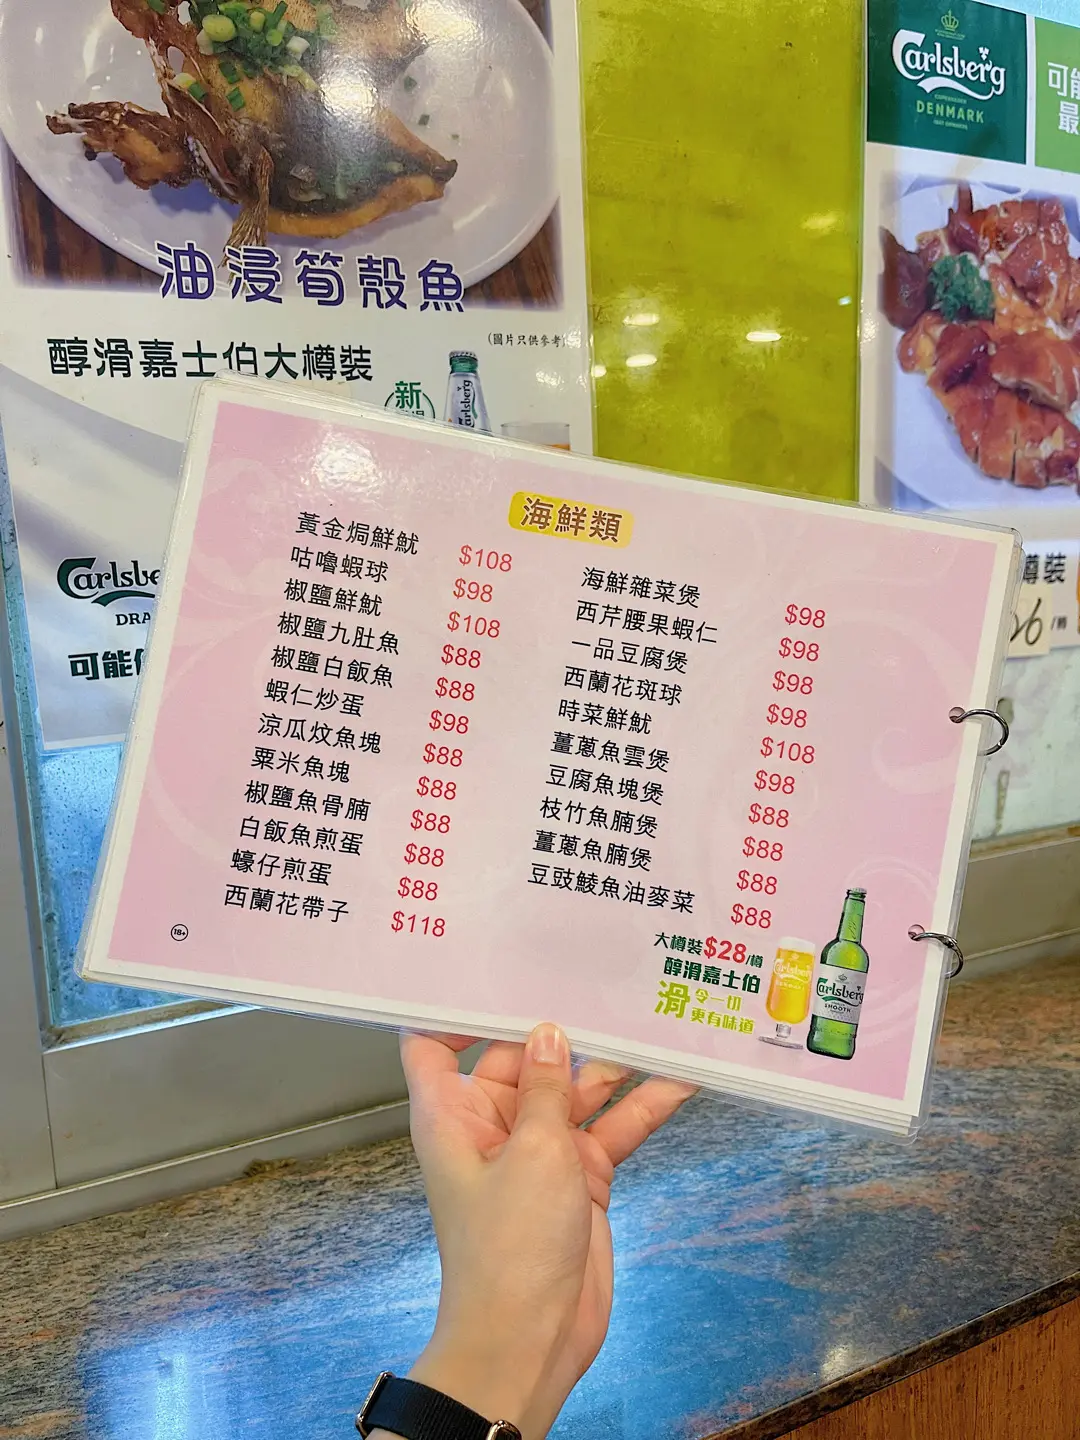 油浸筍殼魚
(圖片只供參考)
醇滑嘉士伯大樽裝
新
Carlsberg
Carlsberg
COPENHAGEN
DENMARK
可能
最
樽裝
/樽
DRA
可能
海鮮類
黃金焗鮮魷 $108
咕嚕蝦球 $98
椒鹽鮮魷 $108
椒鹽九肚魚 $88
椒鹽白飯魚 $88
蝦仁炒蛋 $98
涼瓜炆魚塊 $88
粟米魚塊 $88
椒鹽魚骨腩 $88
白飯魚煎蛋 $88
蠔仔煎蛋 $88
西蘭花帶子 $118
海鮮雜菜煲 $98
西芹腰果蝦仁 $98
一品豆腐煲 $98
西蘭花斑球 $98
時菜鮮魷 $108
薑蔥魚雲煲 $98
豆腐魚塊煲 $88
枝竹魚腩煲 $88
薑蔥魚腩煲 $88
豆豉鯪魚油麥菜 $88
18+
大樽裝$28/樽
醇滑嘉士伯
滑 令一切
更有味道
Carlsberg
Carlsberg
SMOOTH